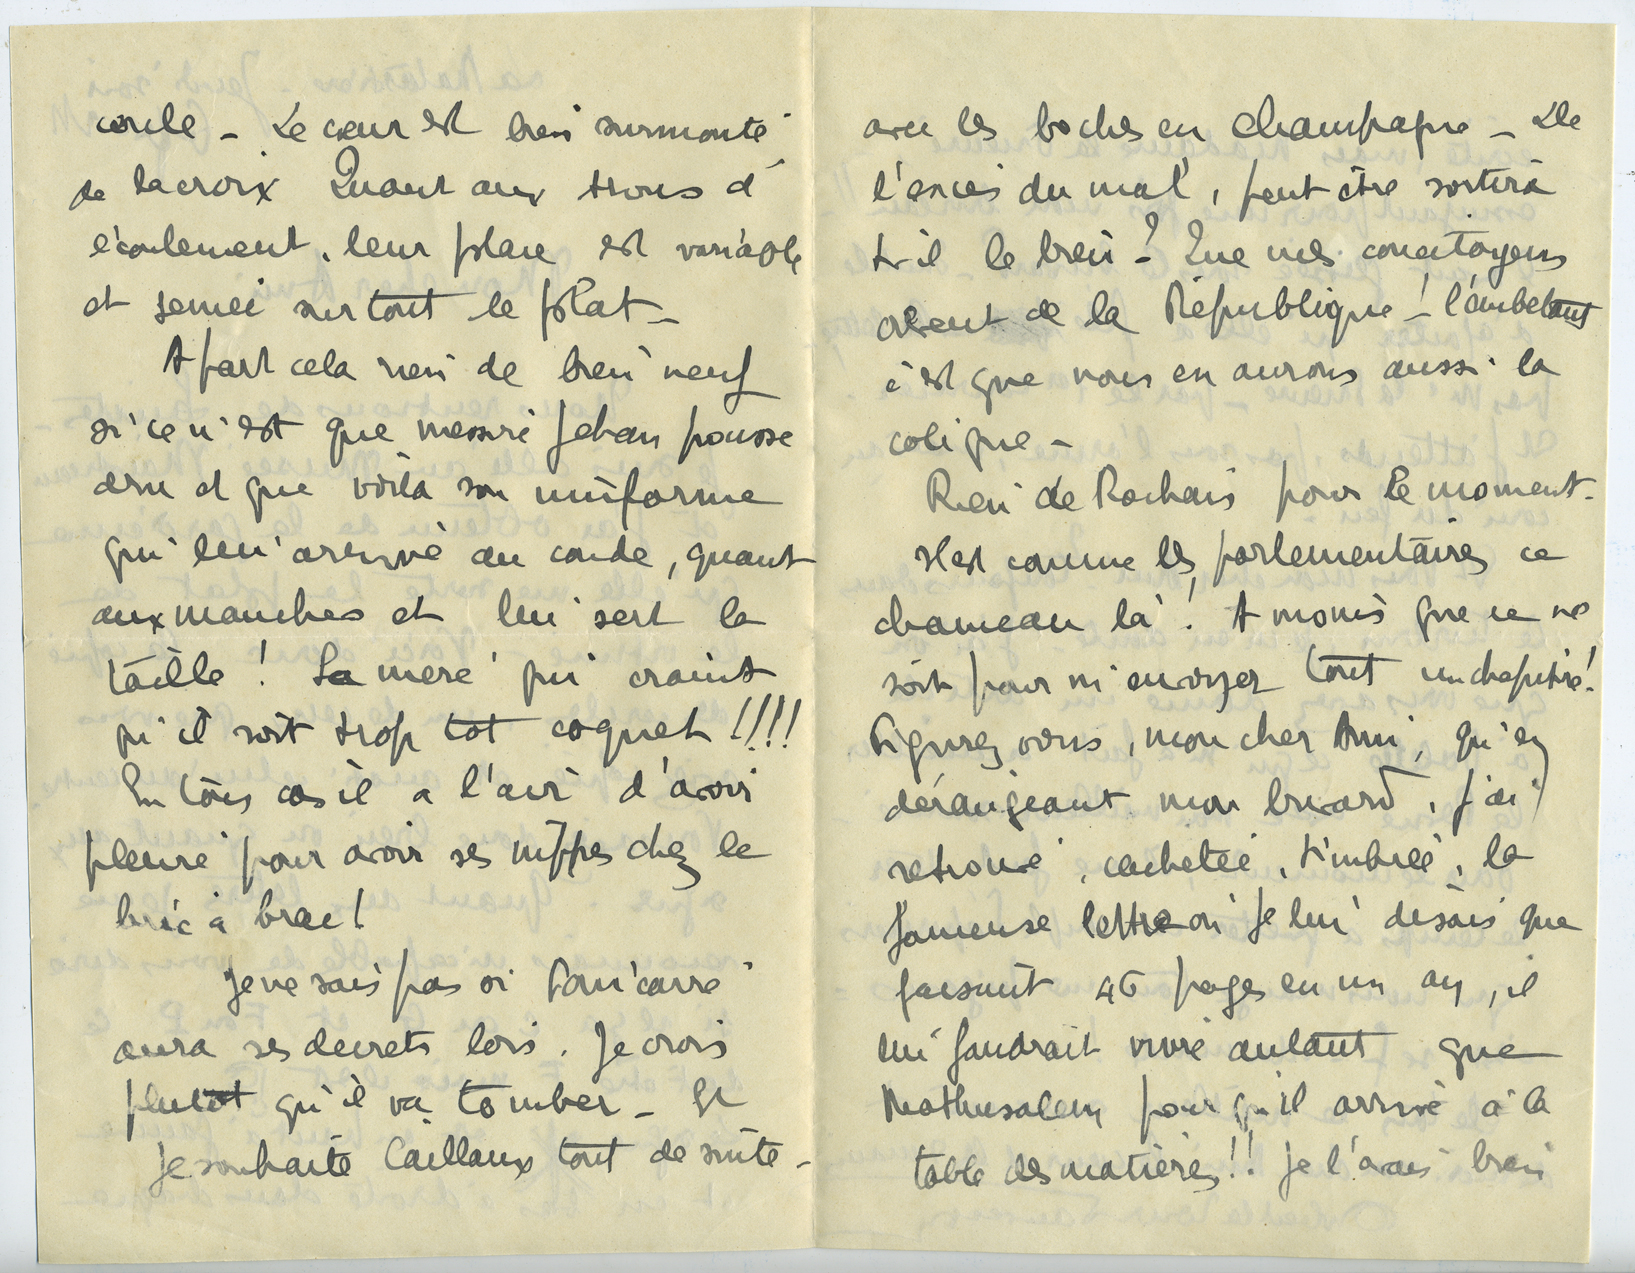 cercle - Le cœur est bien surmonté
de la croix Quant aux trous d'
écoulement, leur place est variable
et semée sur tout le plat -
A part cela rien de bien neuf
si ce n'est que messire Jehan pousse
dru et que voilà son uniforme
qui lui arrive au coude, quant
aux manches et lui sert la
taille ! Sa mere qui craint
qu'il soit trop tot coquet !!!!
En tous cas il a l'air d'avoir
pleuré pour avoir ses nippes chez le
bric à brac !
Je ne sais pas si Poincarré
aura ses decrets lois. Je crois
plutot qu'il va tomber - Et
je souhaite Caillaux tout de suite -
avec les boches en Champagne - De
l'excès du mal, peut être sortira
t-il le bien - ? Que mes concitoyens
de la République ! - l'embetant
c'est que nous en aurons aussi la
colique -
Rien de Rochais pour le moment -
Il est comme les parlementaires ce
chameau là ! A moins que ce ne
soit pour m'envoyer tout un chapitre !
Figurez vous, mon cher Ami, qu'en
dérangeant mon buvard, j'ai
retrouvé, cachetée, timbrée, la
fameuse lettre où je lui disais que
faisant 46 pages en un an, il
lui faudrait vivre autant que
Mathusalem pour qu'il arrive à la
table des matières !! Je l'avais bien